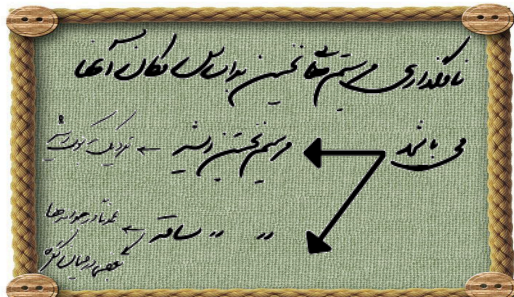 نامگذاری مریستم‌های نخستین براساس مکان آنها
می باشد
مریستم نخستین ریشه ← نزدیک به نوک ریشه
〃 〃 ساقه ← عمدتا در جوانه‌ها
میان گره